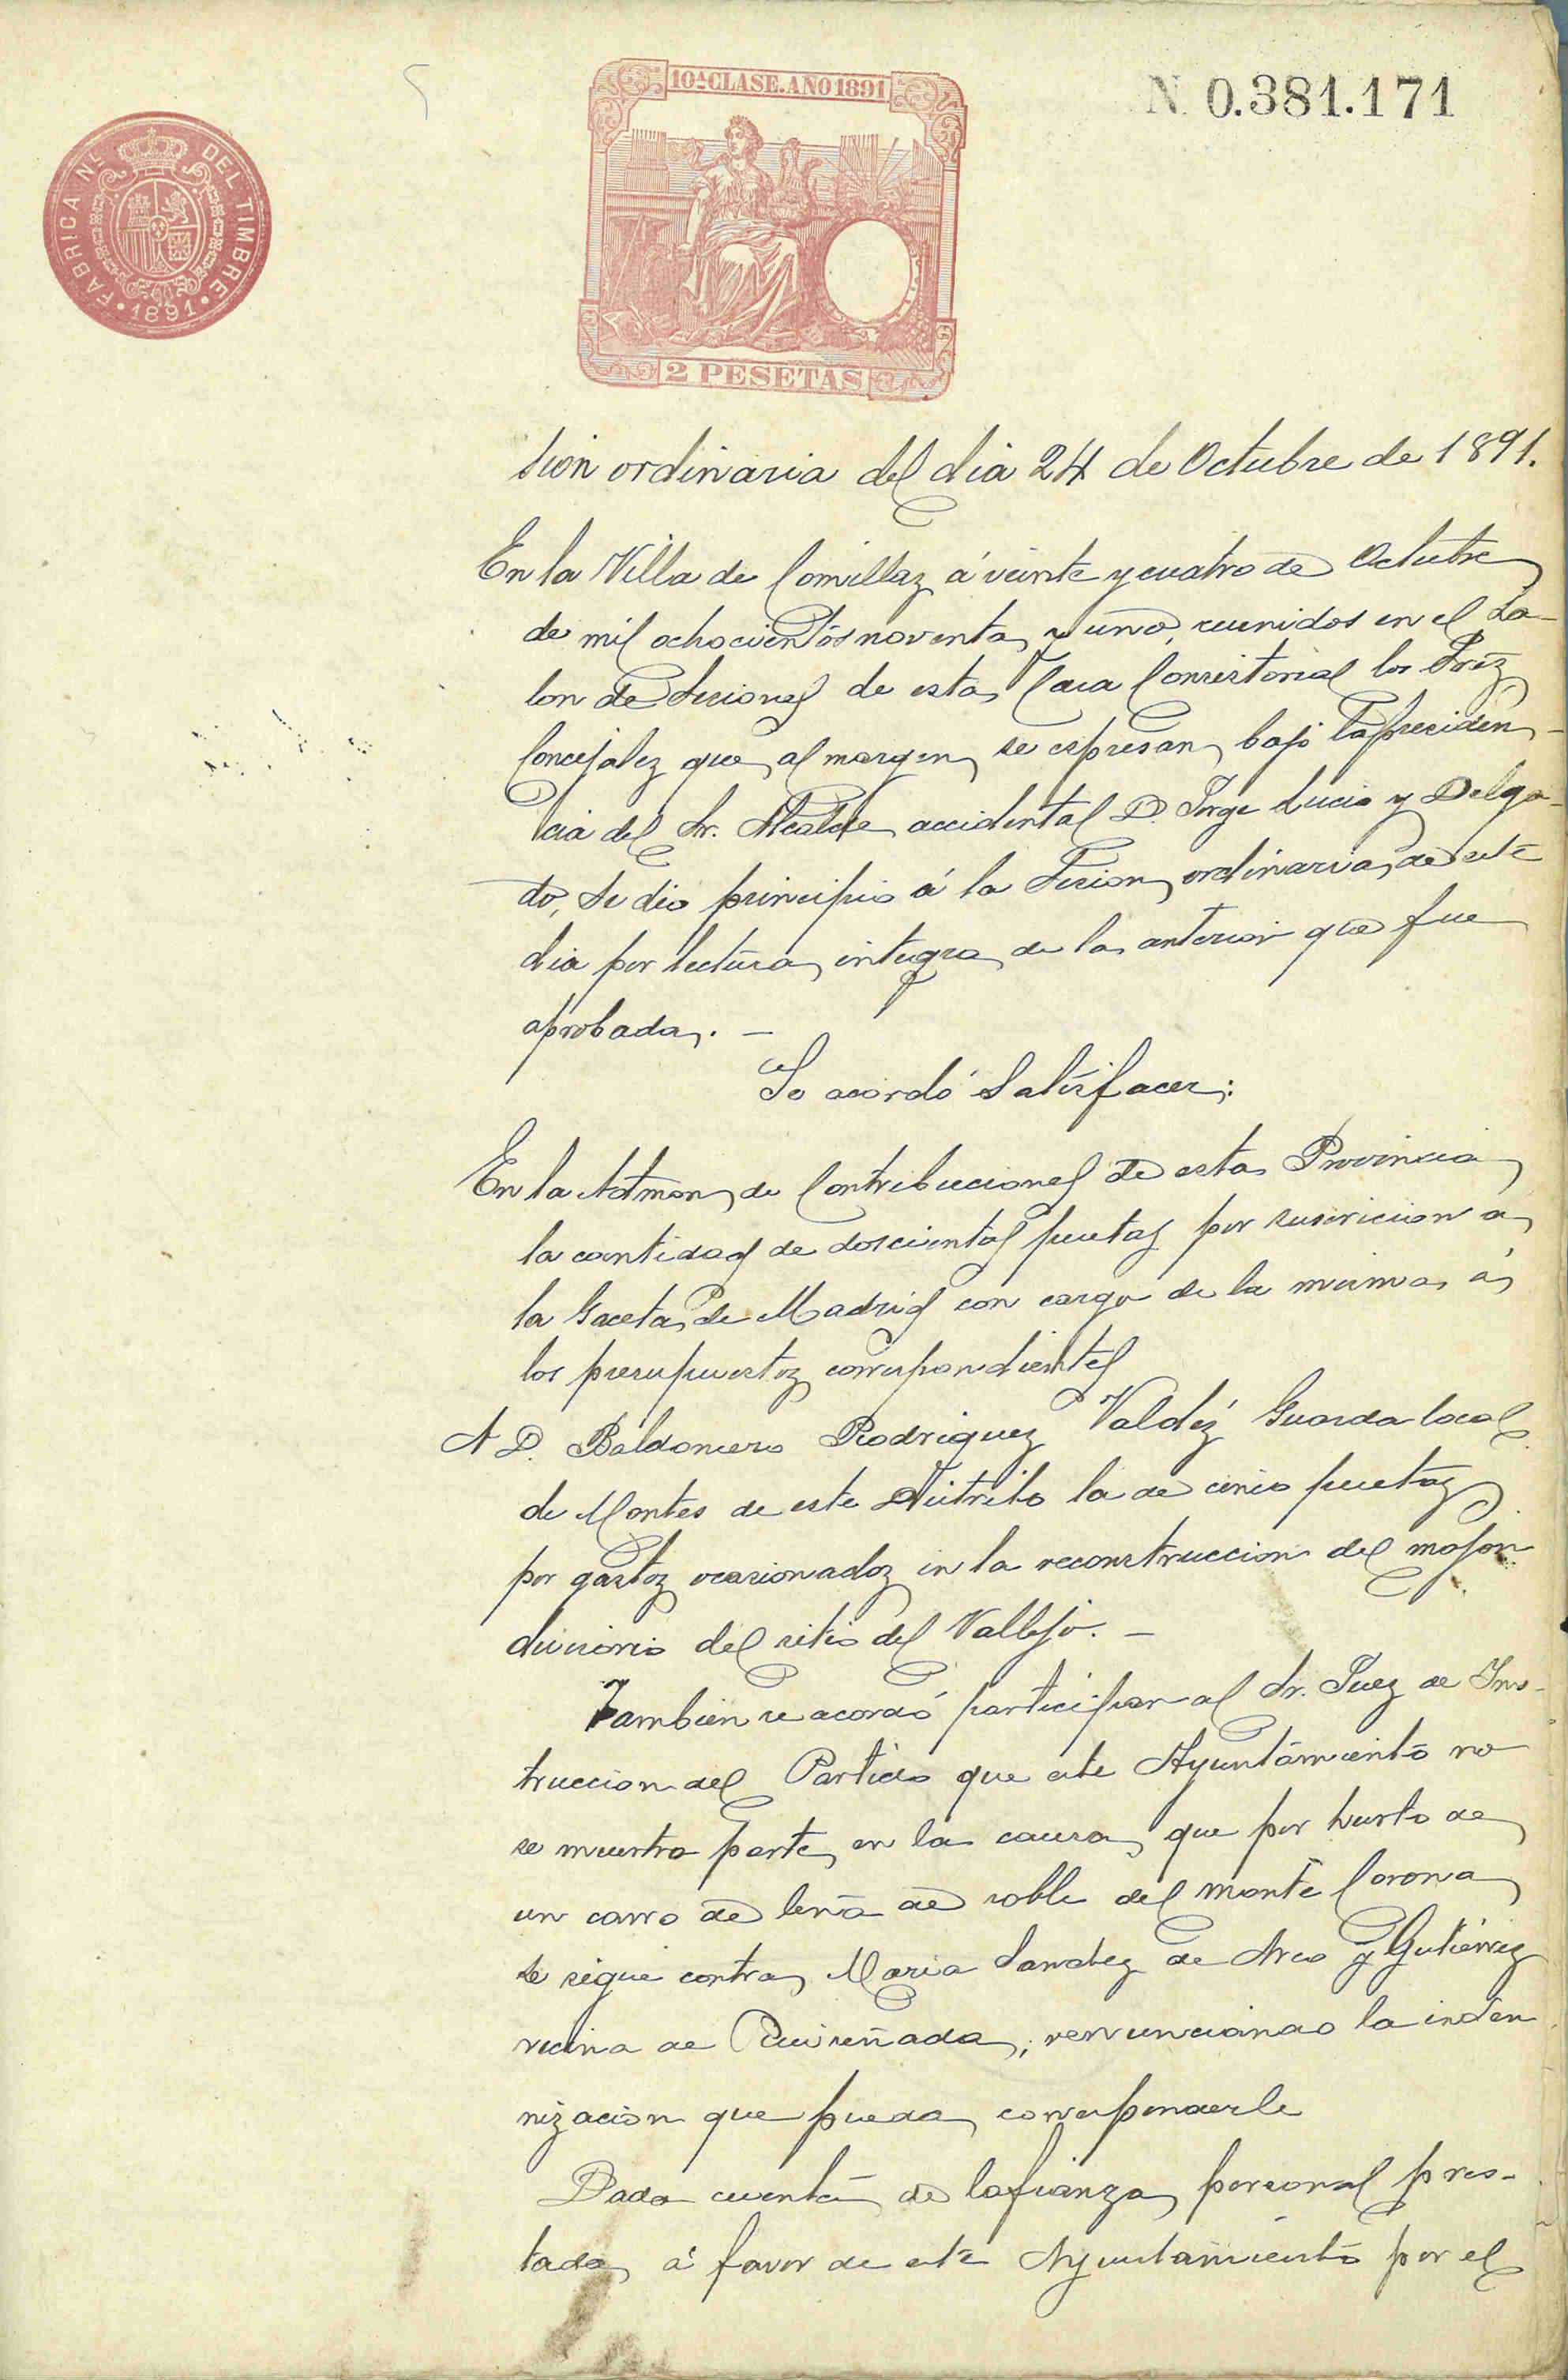 10ª CLASE. AÑO 1891
N. 0.381.171
FABRICA Nᴸ DEL TIMBRE
1891
2 PESETAS
sion ordinaria del dia 24 de Octubre de 1891.
En la Villa de Comillas á veinte y cuatro de Octubre
de mil ochocientos noventa y uno, reunidos en el Sa-
lon de Sesiones de esta Casa Consistorial los Sres
Concejales que al margen se espresan bajo la presiden-
cia del Sr. Alcalde accidental D. Jorge Lucio y Delga-
do, Se dio principio á la Sesion ordinaria de este
dia por lectura integra de la anterior que fue
aprobada. —
Se acordó Satisfacer:
En la Admon de Contribuciones de esta Provincia
la cantidad de doscientas pesetas por suscricion a
la Gaceta de Madrid con cargo de la misma á
los presupuestos correspondientes
A D. Baldomero Rodriguez Valdés Guarda local
de Montes de este Distrito la de cinco pesetas
por gastos ocasionados en la reconstruccion del mojon
divisorio del sitio del Vallejo. —
Tambien se acordó participar al Sr. Juez de Ins-
truccion del Partido que este Ayuntamiento no
se muestra parte en la causa que por hurto de
un carro de leña de roble del monte Corona
se sigue contra Maria Sanchez de Arco y Gutierrez
vecina de Ruiseñada, renunciando la indem
nizacion que pueda corresponderle
Dada cuenta de la fianza personal pres-
tada á favor de este Ayuntamiento por el